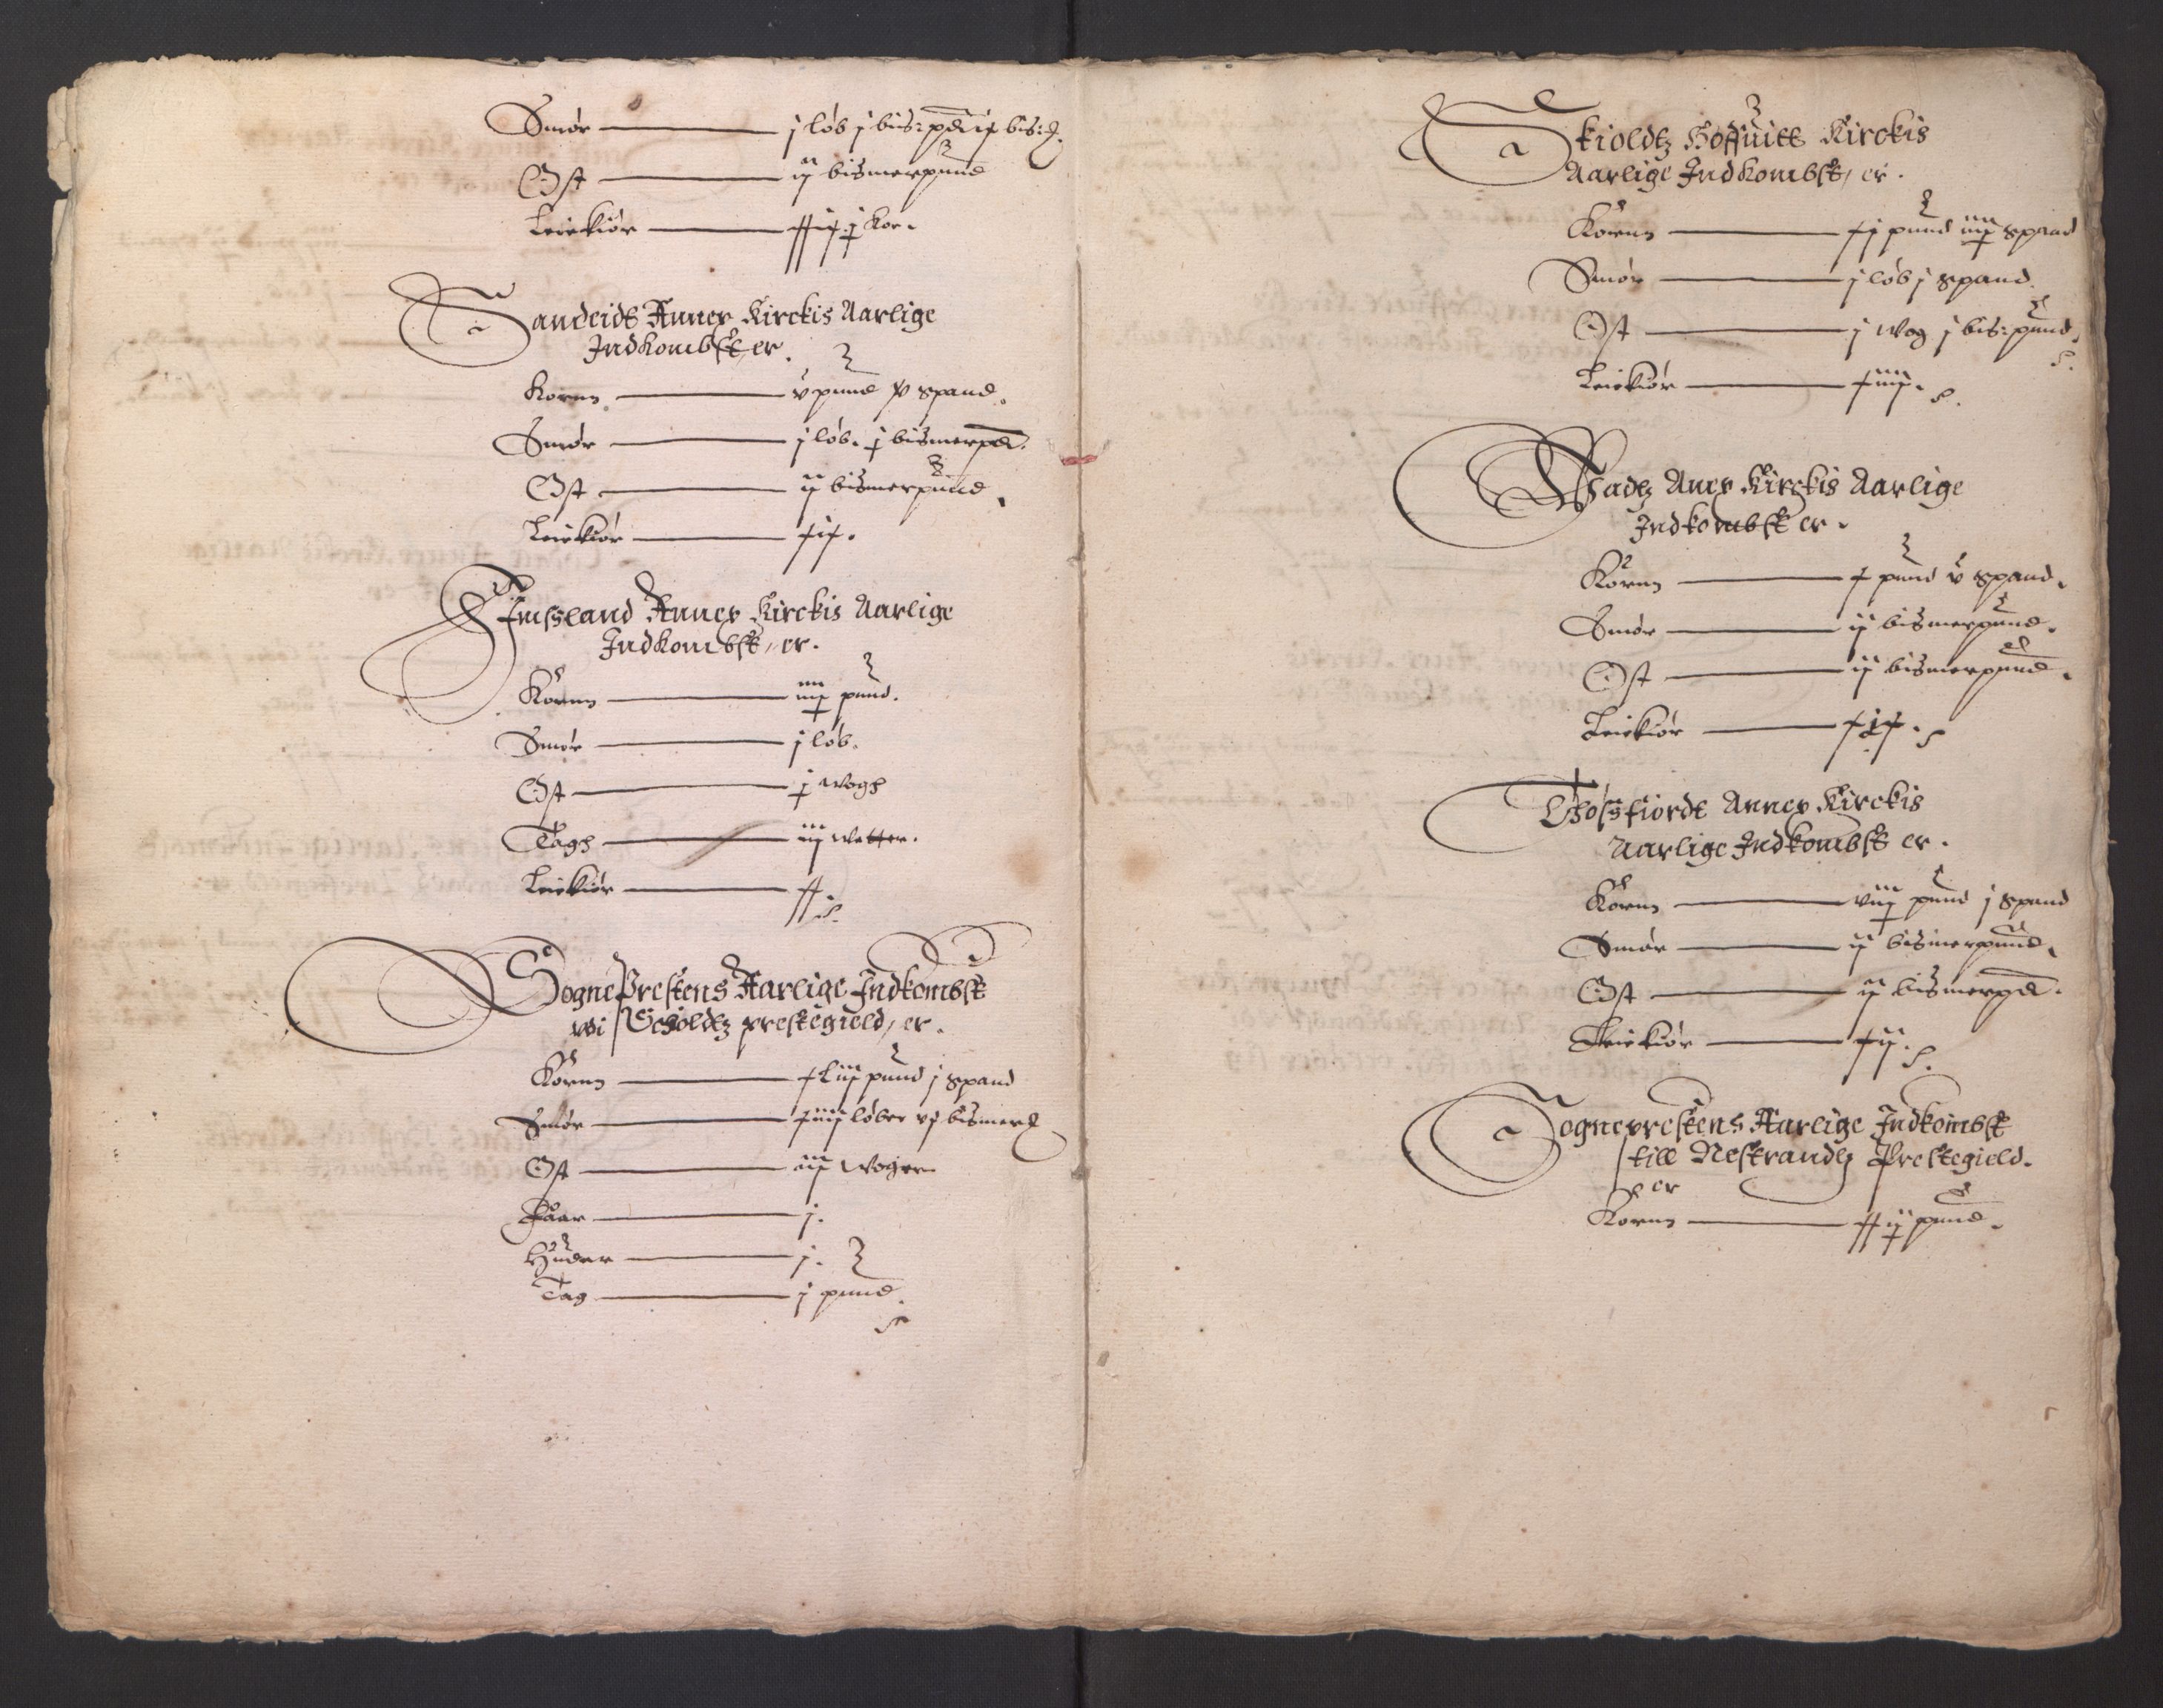 Smør — j løb j bis: pd ix bis: ℔.
Ost — ij bismerpund
Leiekiør — xxix ½ Kør.
Sandeids Annex Kirckis Aarlige
Indkombst, er.
Kornn — v pund xv spand.
Smør — j løb. ½ bismerpd.
Ost — ij bismerpund.
Leiekiør — xix.
Imsland Annex Kirckis Aarlige
Indkombst, er.
Kornn — iiij pund.
Smør — j løb.
Ost — ½ wogh
Tagh — iij wetter.
Leiekiør — xx.
Sogne Prestens Aarlige Indkombst
wi Schioldtz prestegield, er.
Kornn — xliij pund j spand
Smør — xiiij løber vj bismer℔
Ost — iij woger.
Faar — j.
Huder — j.
Tag — j pund.
Skioldtz Hoffuitt Kirckis
Aarlige Indkombst, er.
Kornn — xj pund iiij spand
Smør — j løb j spand.
Ost — j wog j bis: pund.
Leiekiør — xiiij.
Wadtz Anex Kirckis Aarlige
Indkombst er.
Kornn — x pund v spand.
Smør — ij bismerpund.
Ost — ij bismerpund.
Leiekiør — xix.
Wossfiordt Annex Kirckis
Aarlige Indkombst er.
Kornn — viij pund j spand
Smør — ij bismerpund.
Ost — ij bismerpd.
Leiekiør — xij.
Sogneprestens Aarlige Indkombst
till Nestrandtz Prestegield.
er
Kornn — xxij pund.